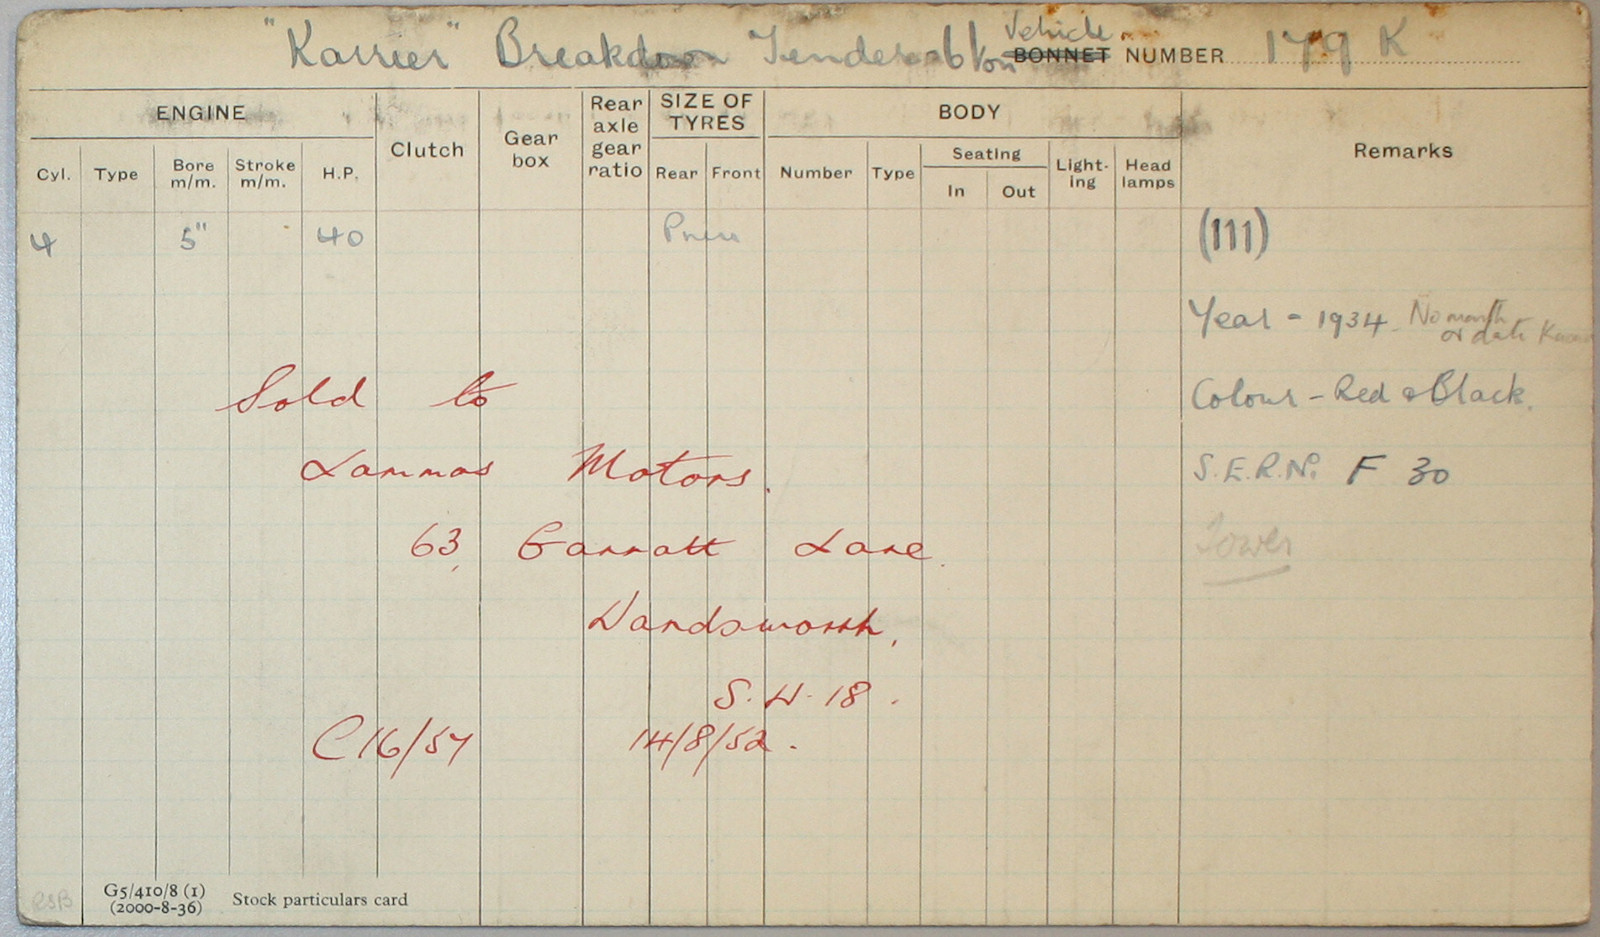 "Karrier" Breakdown Tender 6 ton Vehicle BONNET NUMBER 179 K
ENGINE
Clutch
Gear box
Rear axle gear ratio
SIZE OF TYRES
BODY
Remarks
Cyl. Type Bore m/m. Stroke m/m. H.P. Rear Front Number Type Seating In Out Light-ing Head lamps
4 5" 40 Pneu (111)
Year - 1934. No month or date Known
Sold to Colour - Red & Black.
Lammas Motors. S.E.R.No. F 30
63, Garratt Lane. Tower
Wandsworth,
S.W.18.
C16/57 14/8/52.
G5/410/8 (1)
(2000-8-36) Stock particulars card